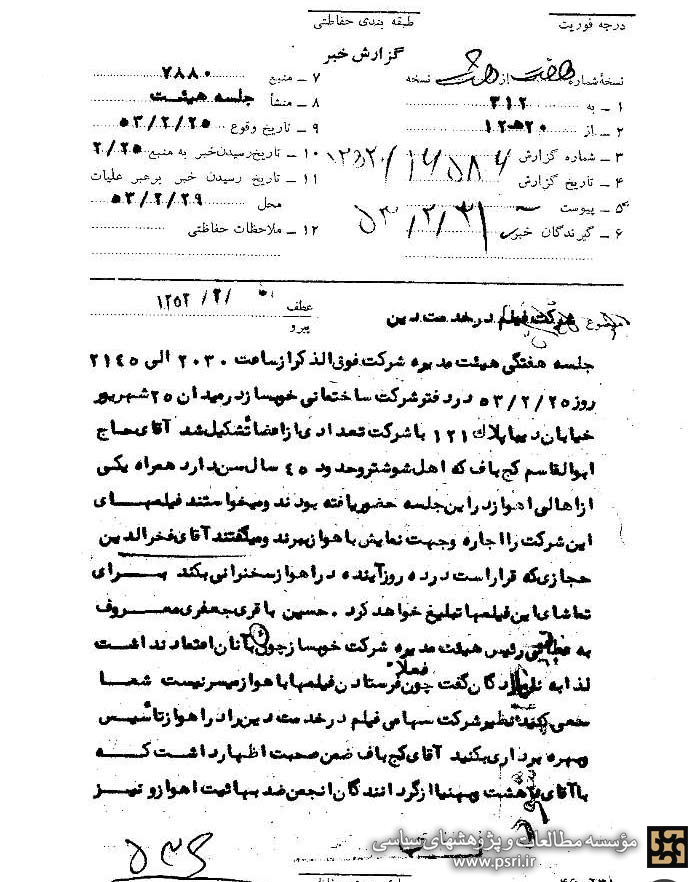 درجه فوریت
طبقه بندی حفاظتی
گزارش خبر
نسخهٔ شماره هفت از هشت نسخه
۱ ـ به ۳۱۲
۲ ـ از ۲۰هـ۱۲
۳ ـ شماره گزارش
۴ ـ تاریخ گزارش
۵ ـ پیوست
۶ ـ گیرندگان خبر
۵۳/۲/۳۱
۷ ـ منبع ۷۸۸۰
۸ ـ منشأ جلسه هیئت
۹ ـ تاریخ وقوع ۵۳/۲/۲۵
۱۰ ـ تاریخ رسیدن خبر به منبع ۲/۲۵
۱۱ ـ تاریخ رسیدن خبر برهبر عملیات
محل ۵۳/۲/۲۹
۱۲ ـ ملاحظات حفاظتی
عطف
پیرو
موضوع شرکت فیلم در خدمت دین
جلسه هفتگی هیئت مدیره شرکت فوق الذکر از ساعت ۲۰۳۰ الی ۲۱۴۵
روز ۵۳/۲/۲۵ در دفتر شرکت ساختمانی خوبساز در میدان ۲۵ شهریور
خیابان دیبا پلاک ۱۲۱ با شرکت تعدادی از اعضا تشکیل شد آقای حاج
ابوالقاسم کج باف که اهل شوشتر و حدود ۴۵ سال سن دارد همراه یکی
از اهالی اهواز در این جلسه حضور یافته بودند و میخواستند فیلمهای
این شرکت را اجاره و جهت نمایش با هواز ببرند و میگفتند آقای فخرالدین
حجازی که قرار است در ده روز آینده در اهواز سخنرانی بکند برای
تماشای این فیلمها تبلیغ خواهد کرد . حسین باقری جعفری معروف
به رئیس هیئت مدیره شرکت خوبساز چون بآنان اعتماد نداشت
لذا به گفت چون فرستادن فیلمها باهواز فعلا" میسر نیست شما
سعی کنید نظیر شرکت سهامی فیلم در خدمت دین را در اهواز تأسیس
بهره برداری بکنید آقای کج باف ضمن صحبت اظهار داشت که
با آقای بهشت از گردانندگان انجمن ضد بهائیت اهواز و نیز
موسسه مطالعات و پژوهشهای سیاسی
www.psri.ir